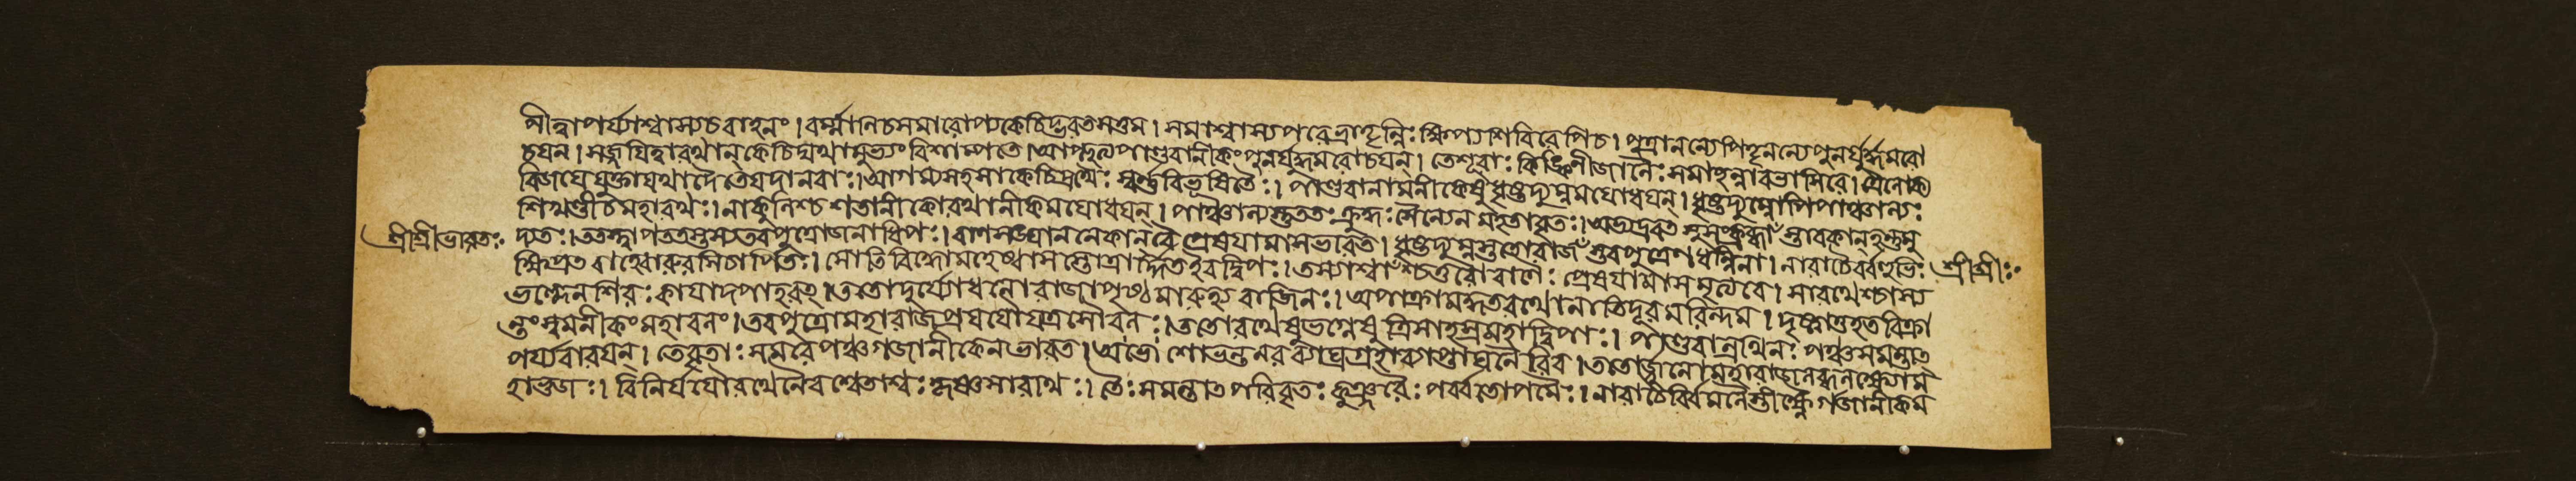 পীত্বাপর্য্যাশ্বাস্যচবাহনং।বর্ম্মানিচসমারোপ্যকেচিদ্ভরতসত্তম।সমাশ্বাস্যপরেভ্রাতৄন্নিঃক্ষিপ্যশিবিরেপিচ।পুত্রানন্যেপিতৄনন্যেপুনর্যুদ্ধমরো
চয়ন।সজ্জয়িত্বারথান্কেচিদ্যথামুখ্যংবিশাম্পতে।আপ্লুত্যপাণ্ডবানীকংপুনর্যুদ্ধমরোচয়ন্।তেশূরাঃকিঙ্কিনীজালৈঃসমাচ্ছন্নাবভাসিরে।ত্রৈলোক্য
বিজয়েযুক্তাযথাদৈতেয়দানবাঃ।আগম্যসহসাকেচিদ্রথৈঃস্বর্ণবিভূষিতৈঃ।পাণ্ডবানামনীকেষুধৃষ্টদ্যুম্নমযোধয়ন্।ধৃষ্টদ্যুম্নোপিপাঞ্চাল্যঃ
শিখণ্ডীচমহারথঃ।নাকুলিশ্চশতানীকোরথানীকমযোধয়ন্।পাঞ্চাল্যস্তুততঃক্রুদ্ধঃসৈন্যেনমহতাবৃতঃ।অভ্যদ্রবত্সুসংক্রুদ্ধাঁস্তাবকান্হন্তুমু
শ্রীশ্রীভারতঃ দ্যতঃ।ততস্ত্বাপততস্তস্যতবপুত্রোজনাধিপঃ।বাণসঙ্ঘাননেকান্বৈপ্রেষয়ামাসভারত।ধৃষ্টদ্যুম্নস্ততোরাজঁস্তবপুত্রেণধন্বিনা।নারাচৈর্বর্বহুভিঃ শ্রীশ্রীঃ
ক্ষিপ্রতবাহ্বোরুরসিচার্পিতঃ।সোতিবিদ্ধোমহেষ্বাসস্তোত্রার্দ্দিতইবদ্বিপঃ।তস্যাশ্বাঁশ্চতুরোবাণৈঃপ্রেষয়ামাসমৃত্যবে।সারথেশ্চাস্য
ভল্লেনশিরঃকায়াদপাহরৎ।ততোদুর্য্যোধনোরাজাপৃষ্ঠমারুহ্যবাজিনঃ।অপাক্রামদ্ধতরথোনাতিদূরমরিন্দম।দৃষ্ট্বাতুহতবিক্রা
ন্তংস্বমনীকংমহাবলং।তবপুত্রোমহারাজপ্রযযৌযত্রসৌবলঃ।ততোরথেষুভগ্নেষুত্রিসাহস্রমহাদ্বিপাঃ।পাণ্ডবান্রথিনঃপঞ্চসমন্তাত্
পর্য্যবারয়ন্।তেবৃতাঃসমরেপঞ্চগজানীকেনভারত।অশোভন্তনরব্যাঘ্রগ্রহাব্যাপ্তাঘনৈরিব।ততোর্জ্জুনোমহারাজলব্ধলক্ষ্যোম
হাভুজঃ।বিনির্যযৌরথেনৈবশ্বেতাশ্বঃকৃষ্ণসারথিঃ।তৈঃসমন্তাতপরিবৃতঃকুঞ্জরৈঃপর্ব্বতোপমৈঃ।নারাচৈর্বিমলৈস্তীক্ষ্ণৈর্গজানীকম